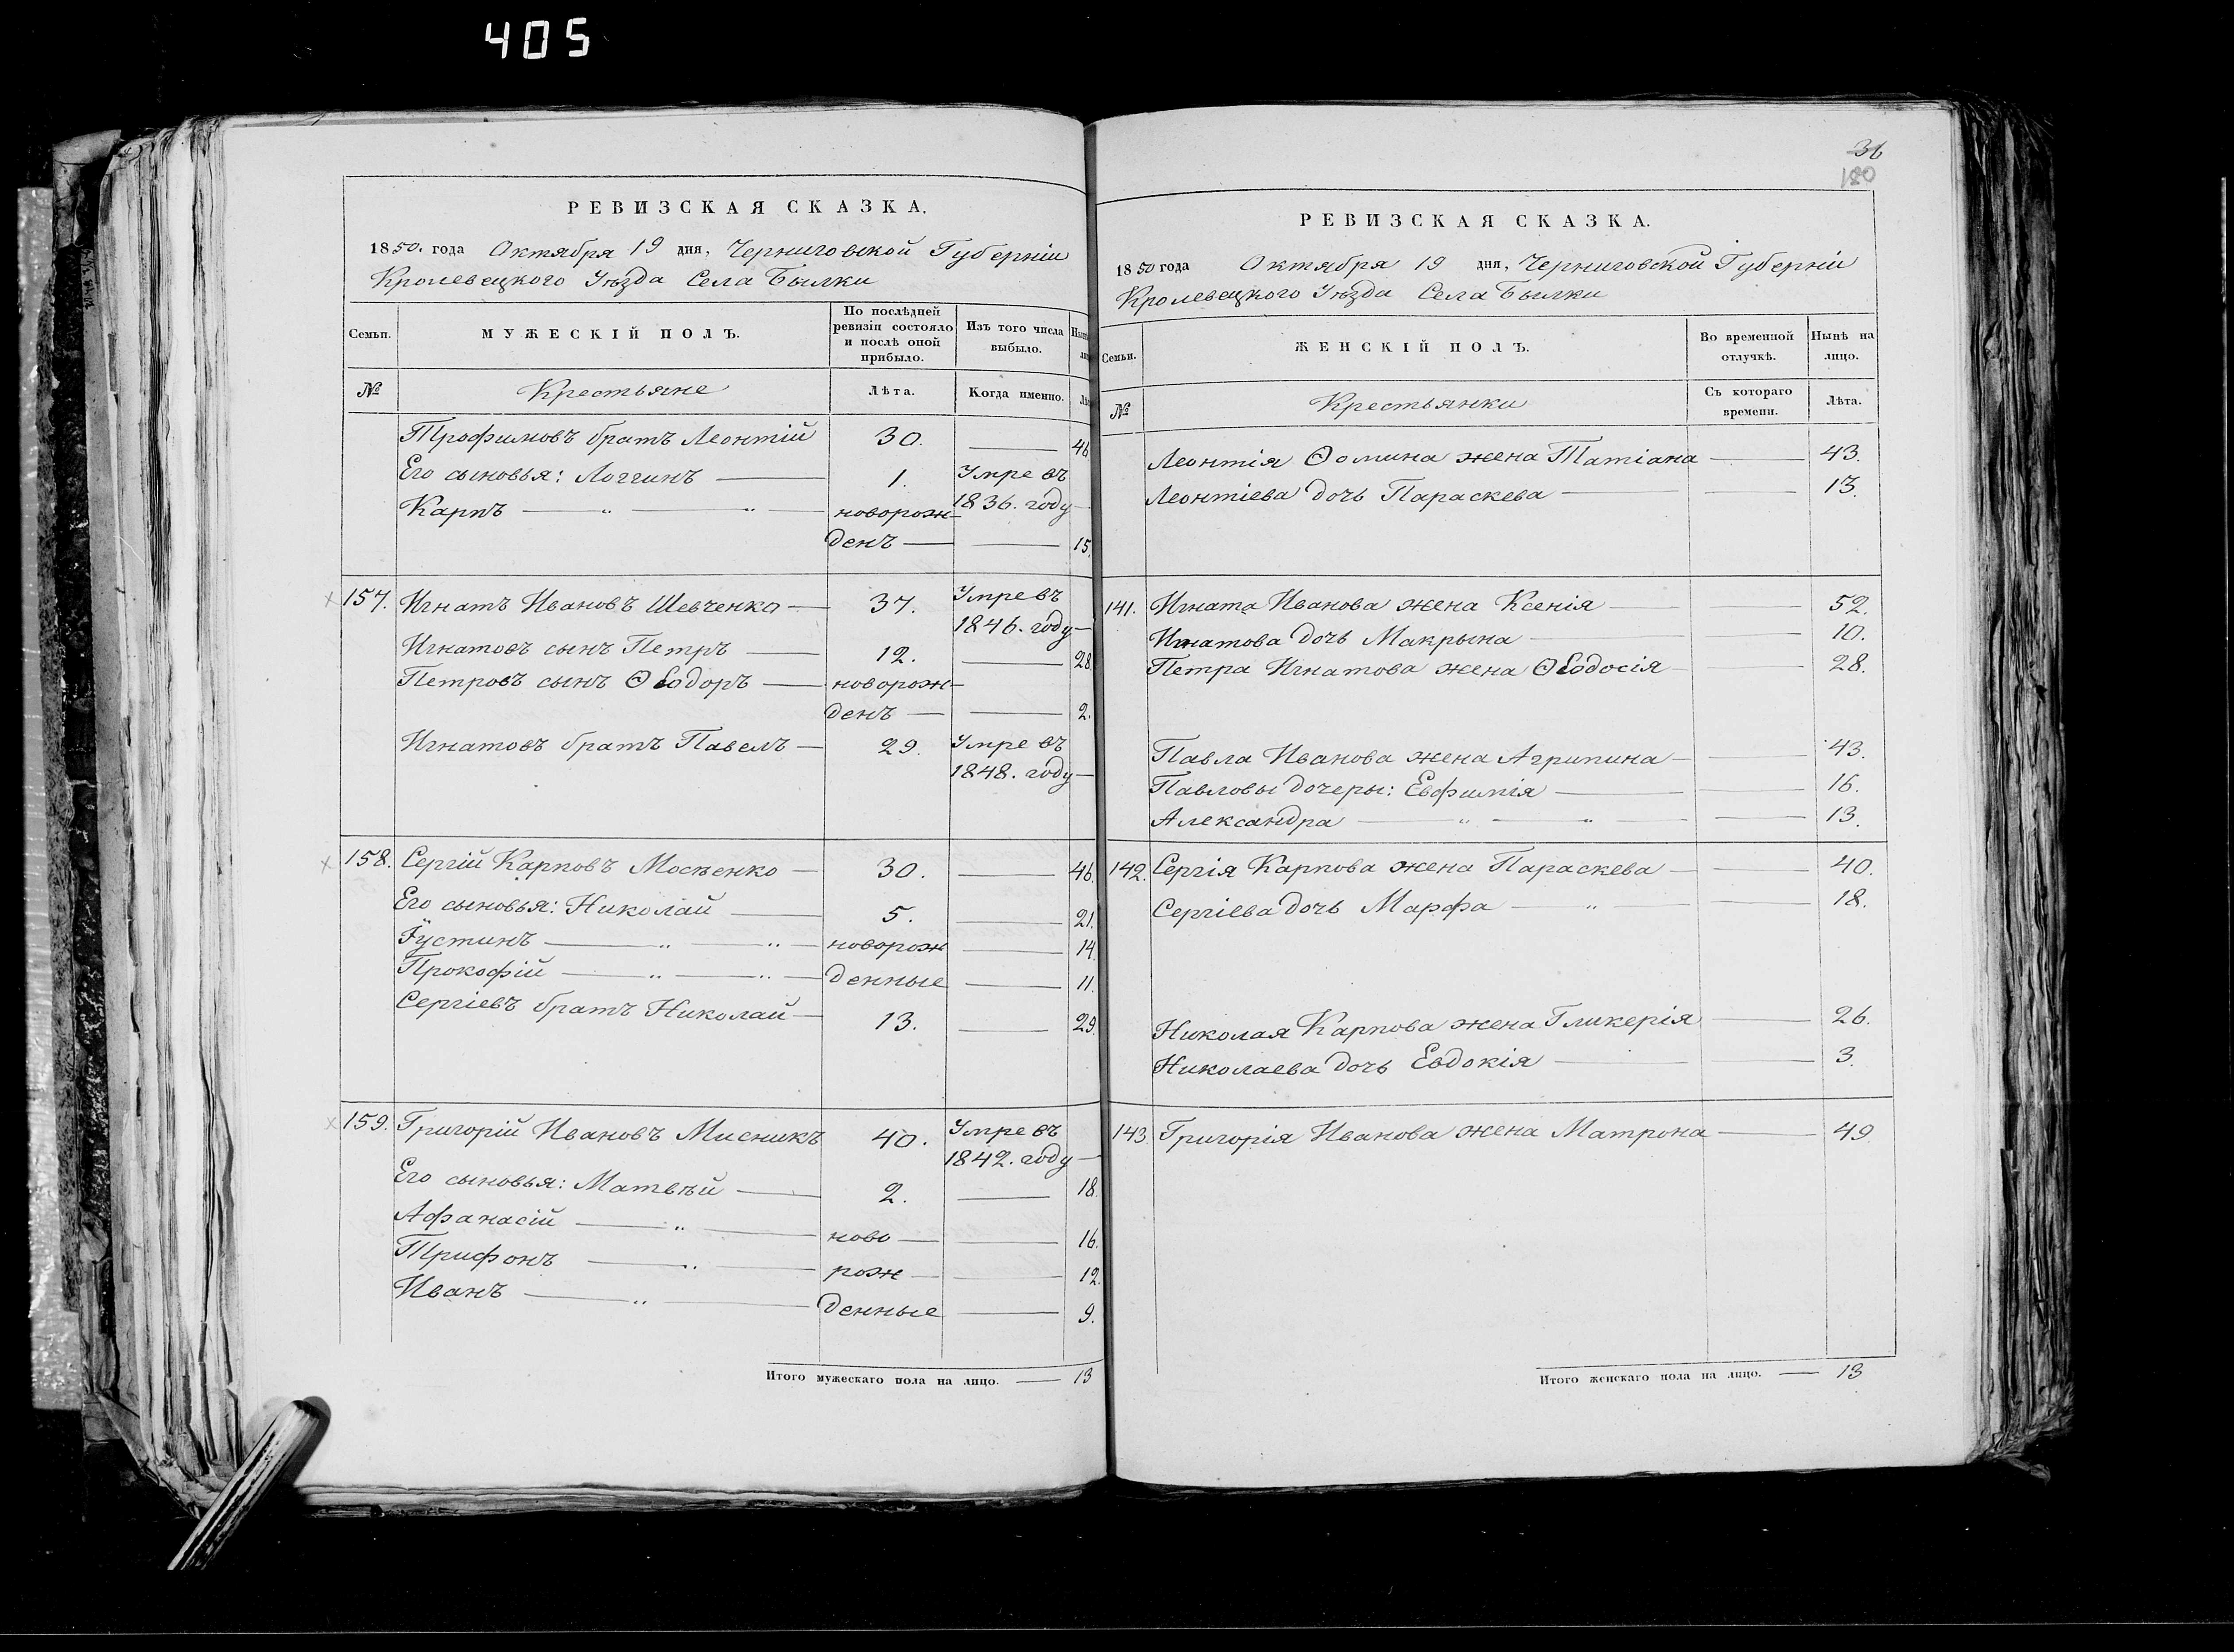 405
РЕВИЗСКАЯ СКАЗКА.
1850. года Октября 19 дня, Черниговской Губерніи
Кролевецкого Уѣзда Села Былки
Семьи. МУЖЕСКІЙ ПОЛЪ. По послѣдней ревизіи состояло и послѣ оной прибыло. Изъ того числа выбыло.
№ Крестьяне Лѣта. Когда именно.
Трофимовъ братъ Леонтій — 30. — 46.
Его сыновья: Логгинъ — 1. Умре въ
Карпъ — " — " — новорож— 1836. году —
денъ — — 15.
157. Игнатъ Ивановъ Шевченко — 37. Умре въ
1846. году —
Игнатовъ сынъ Петръ — 12. — 28.
Петровъ сынъ Ѳеодоръ — новорож—
денъ — — 2.
Игнатовъ братъ Павелъ — 29. Умре въ
1848. году —
158. Сергій Карповъ Мосѣенко — 30. — 46.
Его сыновья: Николай — 5. — 21.
Іустинъ — " — " — новорож — 14.
Прокофій — " — " — денные — 11.
Сергіевъ братъ Николай — 13. — 29.
159. Григорій Ивановъ Мисникъ 40. Умре въ
1842. году —
Его сыновья: Матвѣй — 2. — 18.
Афанасій — " — ново — — 16.
Трифонъ — " — рож — — 12.
Иванъ — " — денные — 9.
Итого мужескаго пола на лицо. — 13
36
180
РЕВИЗСКАЯ СКАЗКА.
1850 года Октября 19 дня, Черниговской Губерніи
Кролевецкого Уѣзда Села Былки
Семьи. ЖЕНСКІЙ ПОЛЪ. Во временной отлучкѣ. Нынѣ на лицо.
№ Крестьянки Съ котораго времени. Лѣта.
Леонтія Ѳомина жена Татіана — 43.
Леонтіева дочь Параскева — — 13.
141. Игната Иванова жена Ксенія — — 52.
Игнатова дочь Макрына — — 10.
Петра Игнатова жена Ѳеодосія — — 28.
Павла Иванова жена Агрипина — — 43.
Павловы дочеры: Евфимія — — 16.
Александра — " — " — — 13.
142. Сергія Карпова жена Параскева — — 40.
Сергіева дочь Марфа — " — — 18.
Николая Карпова жена Гликерія — 26.
Николаева дочь Евдокія — — 3.
143. Григорія Иванова жена Матрона — 49.
Итого женскаго пола на лицо. — 13